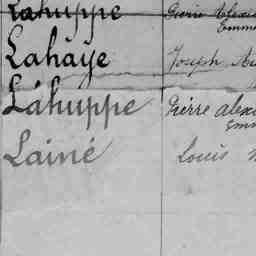 Lahuppe Pierre Alexi
Emm
Lahaye Joseph Au
Láhuppe Pierre alex
Emm
Lainé Louis